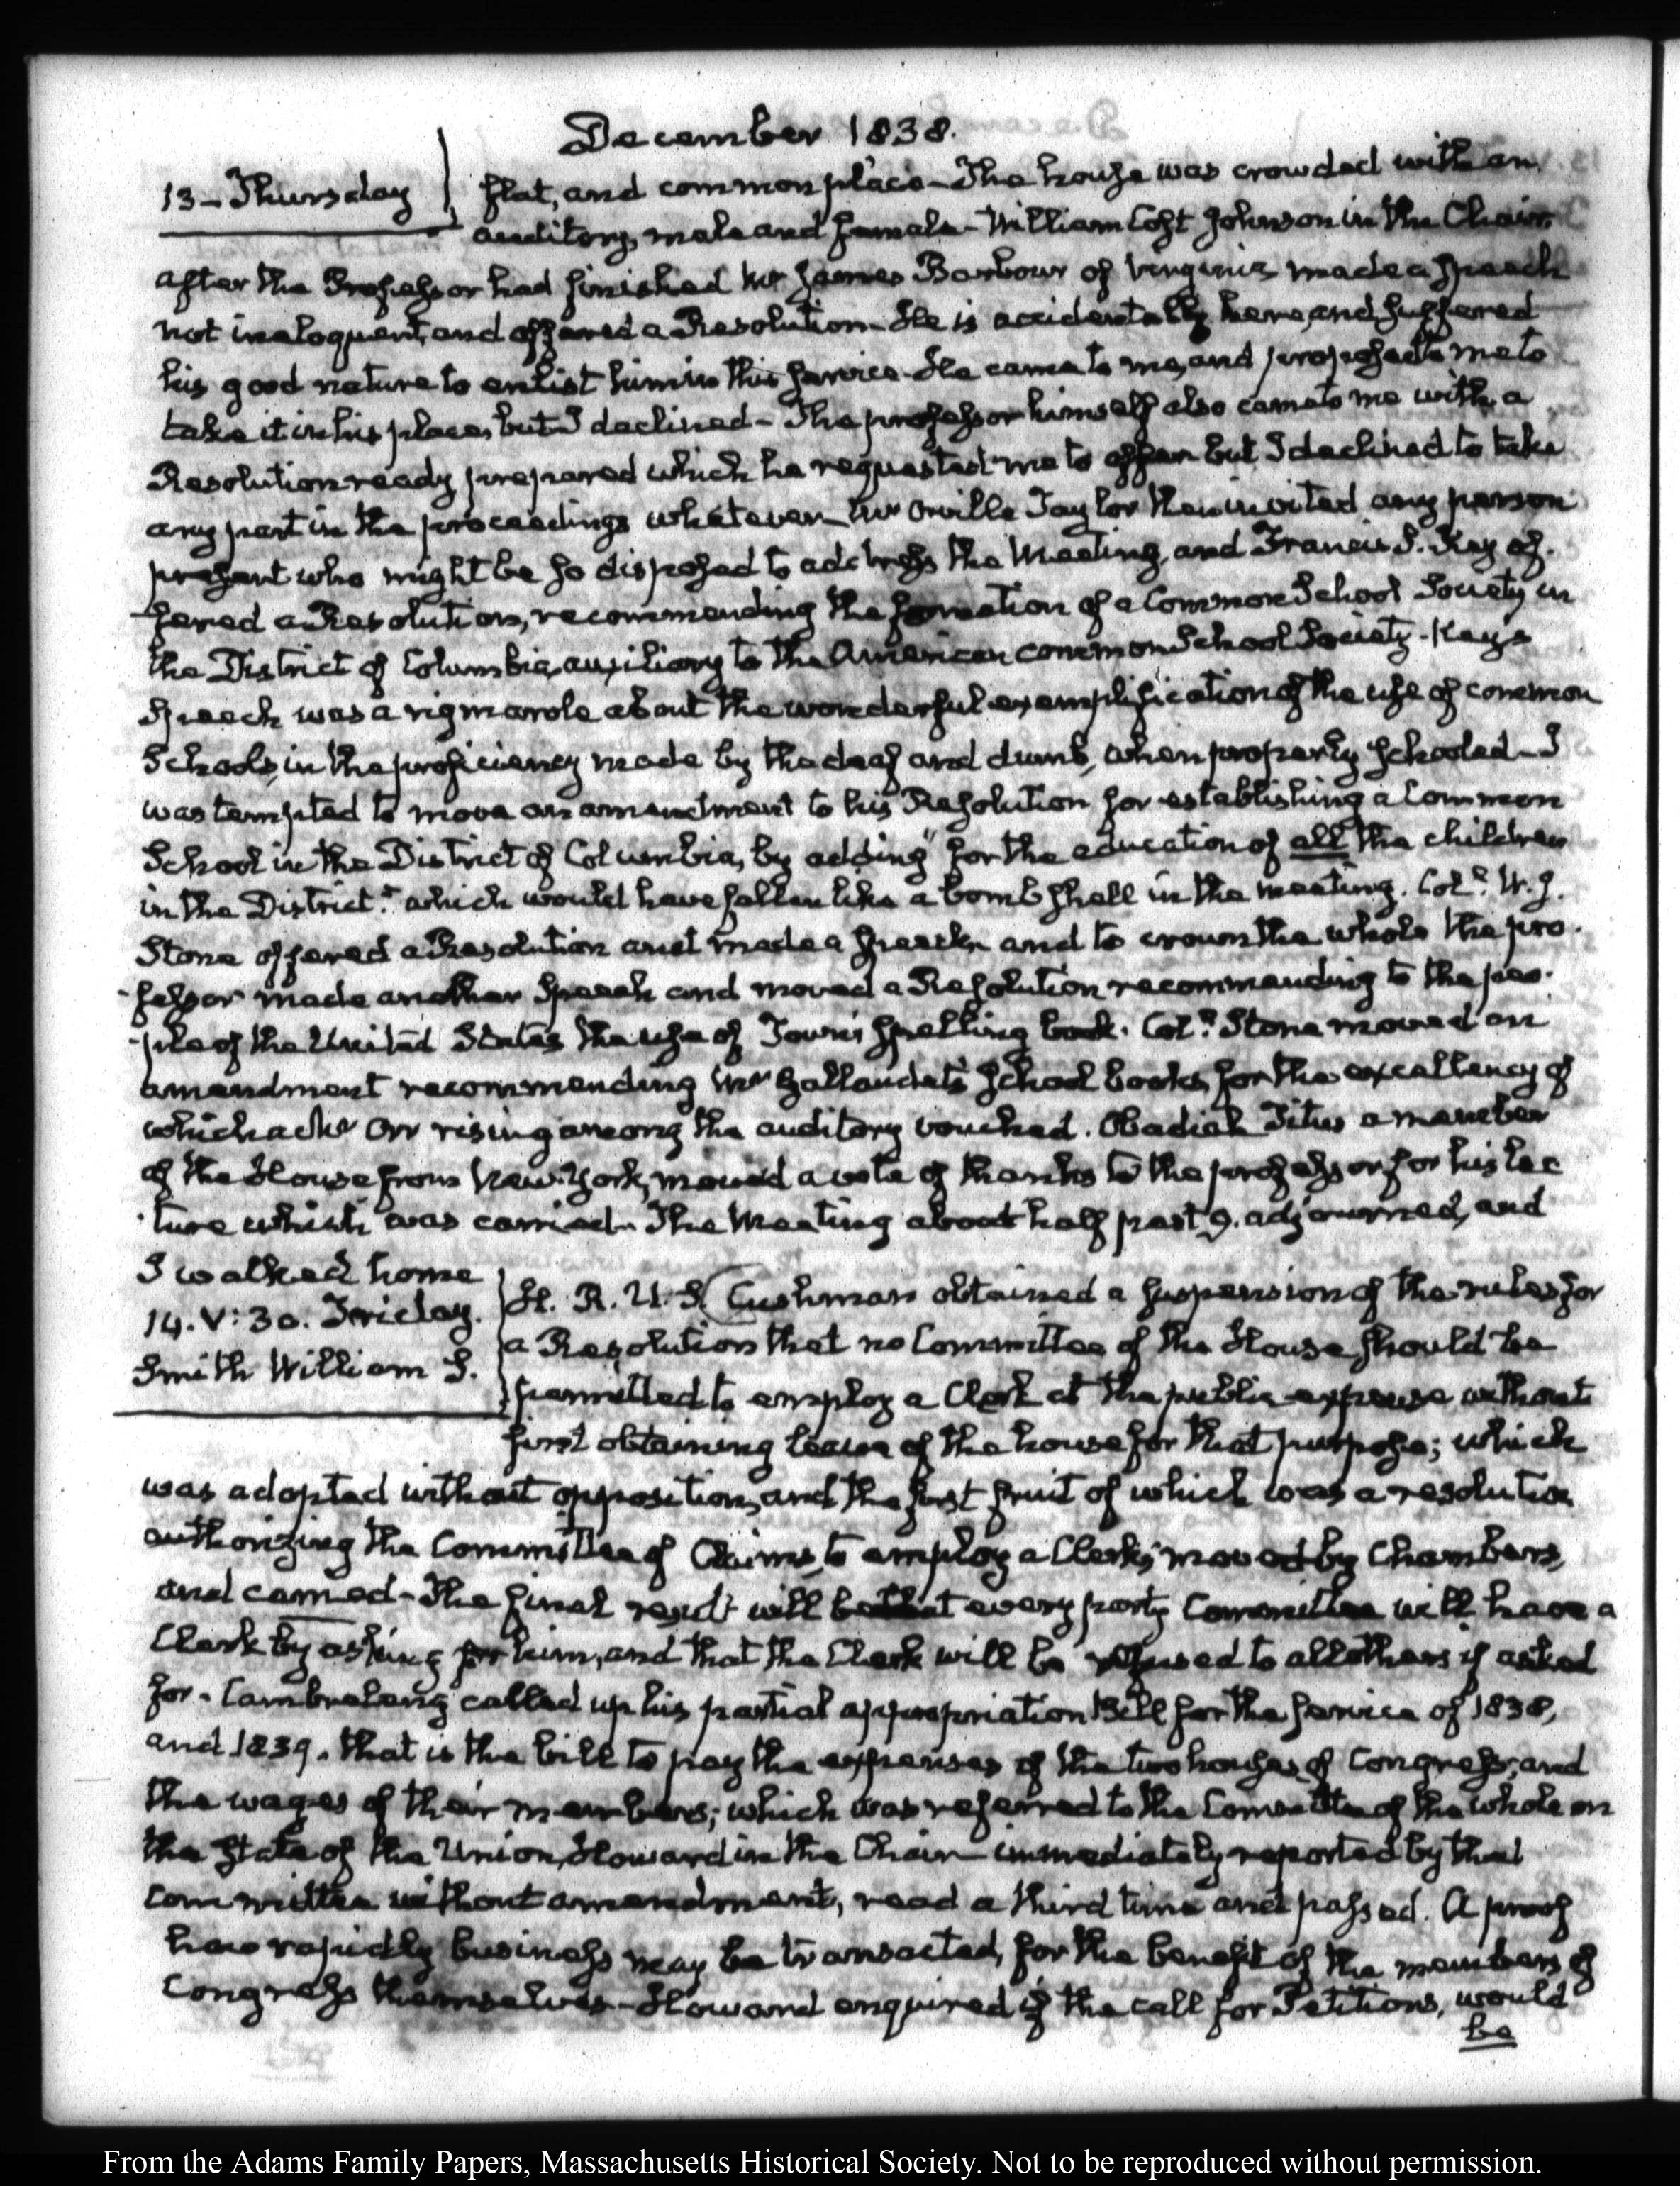 December 1838.
13 – Thursday
flat, and common place – The house was crowded with an
auditory, male and female – William Cost Johnson in the Chair.
after the Professor had finished Mr James Barbour of Virginia made a speech
not ineloquent, and offered a Resolution – He is accidentally here, and suffered
his good nature to enlist him in this service – He came to me, and proposed to me to
take it in his place, but I declined – The professor himself also came to me with a
Resolution ready prepared which he requested me to offer but I declined to take
any part in the proceedings whatever – Mr Orville Taylor then invited any person
present who might be so disposed to address the Meeting, and Francis S. Key of-
-fered a Resolution, recommending the formation of a Common School Society in
the District of Columbia, auxiliary to the American common School Society – Key's
Speech was a rigmarole about the wonderful exemplification of the use of common
Schools, in the proficiency made by the deaf and dumb, when properly schooled – I
was tempted to move an amendment to his Resolution for establishing a Common
School in the District of Columbia, by adding "for the education of all the children
in the District." which would have fallen like a bomb shell in the meeting. Col.? W. J.
Stone offered a Resolution and made a speech and to crown the whole the pro-
-fessor made another Speech and moved a Resolution recommending to the peo-
-ple of the United States the use of Town's spelling book. Col.? Stone moved an
amendment recommending Mr Gallaudet's School books, for the excellency of
which a Mr Orr rising among the auditory vouched. Obadiah Titus a member
of the House from New-York, moved a vote of thanks to the professor for his lec
-ture which was carried – The Meeting about half past 9. adjourned, and
I walked home
14. V: 30. Friday.
Smith William S.
H. R. U. S. Cushman obtained a suspension of the rules for
a Resolution that no Committee of the House should be
permitted to employ a Clerk at the public expense without
first obtaining leave of the house for that purpose; which
was adopted without opposition, and the first fruit of which was a resolution
authorizing the Committee of Claims, to employ a Clerk; moved by Chambers,
and carried – The final result will be that every party Committee will have a
Clerk by asking for him, and that the Clerk will be refused to all others if asked
for. Cambreleng called up his partial appropriation Bill for the service of 1838,
and 1839. that is the bill to pay the expenses of the two houses of Congress, and
the wages of their members; which was referred to the Committee of the whole on
the state of the Union, Howard in the Chair – immediately reported by that
Committee without amendment, read a third time and passed. A proof
how rapidly business may be transacted, for the benefit of the members of
Congress themselves – Howard enquired if the call for Petitions, would
be
From the Adams Family Papers, Massachusetts Historical Society. Not to be reproduced without permission.